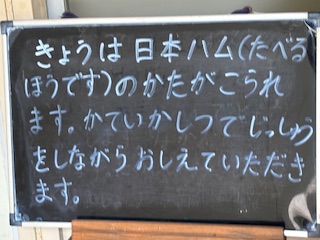 きょうは日本ハム(たべる
ほうです)のかたがこられ
ます。かていかしつでじっしゅう
をしながらおしえていただき
ます。